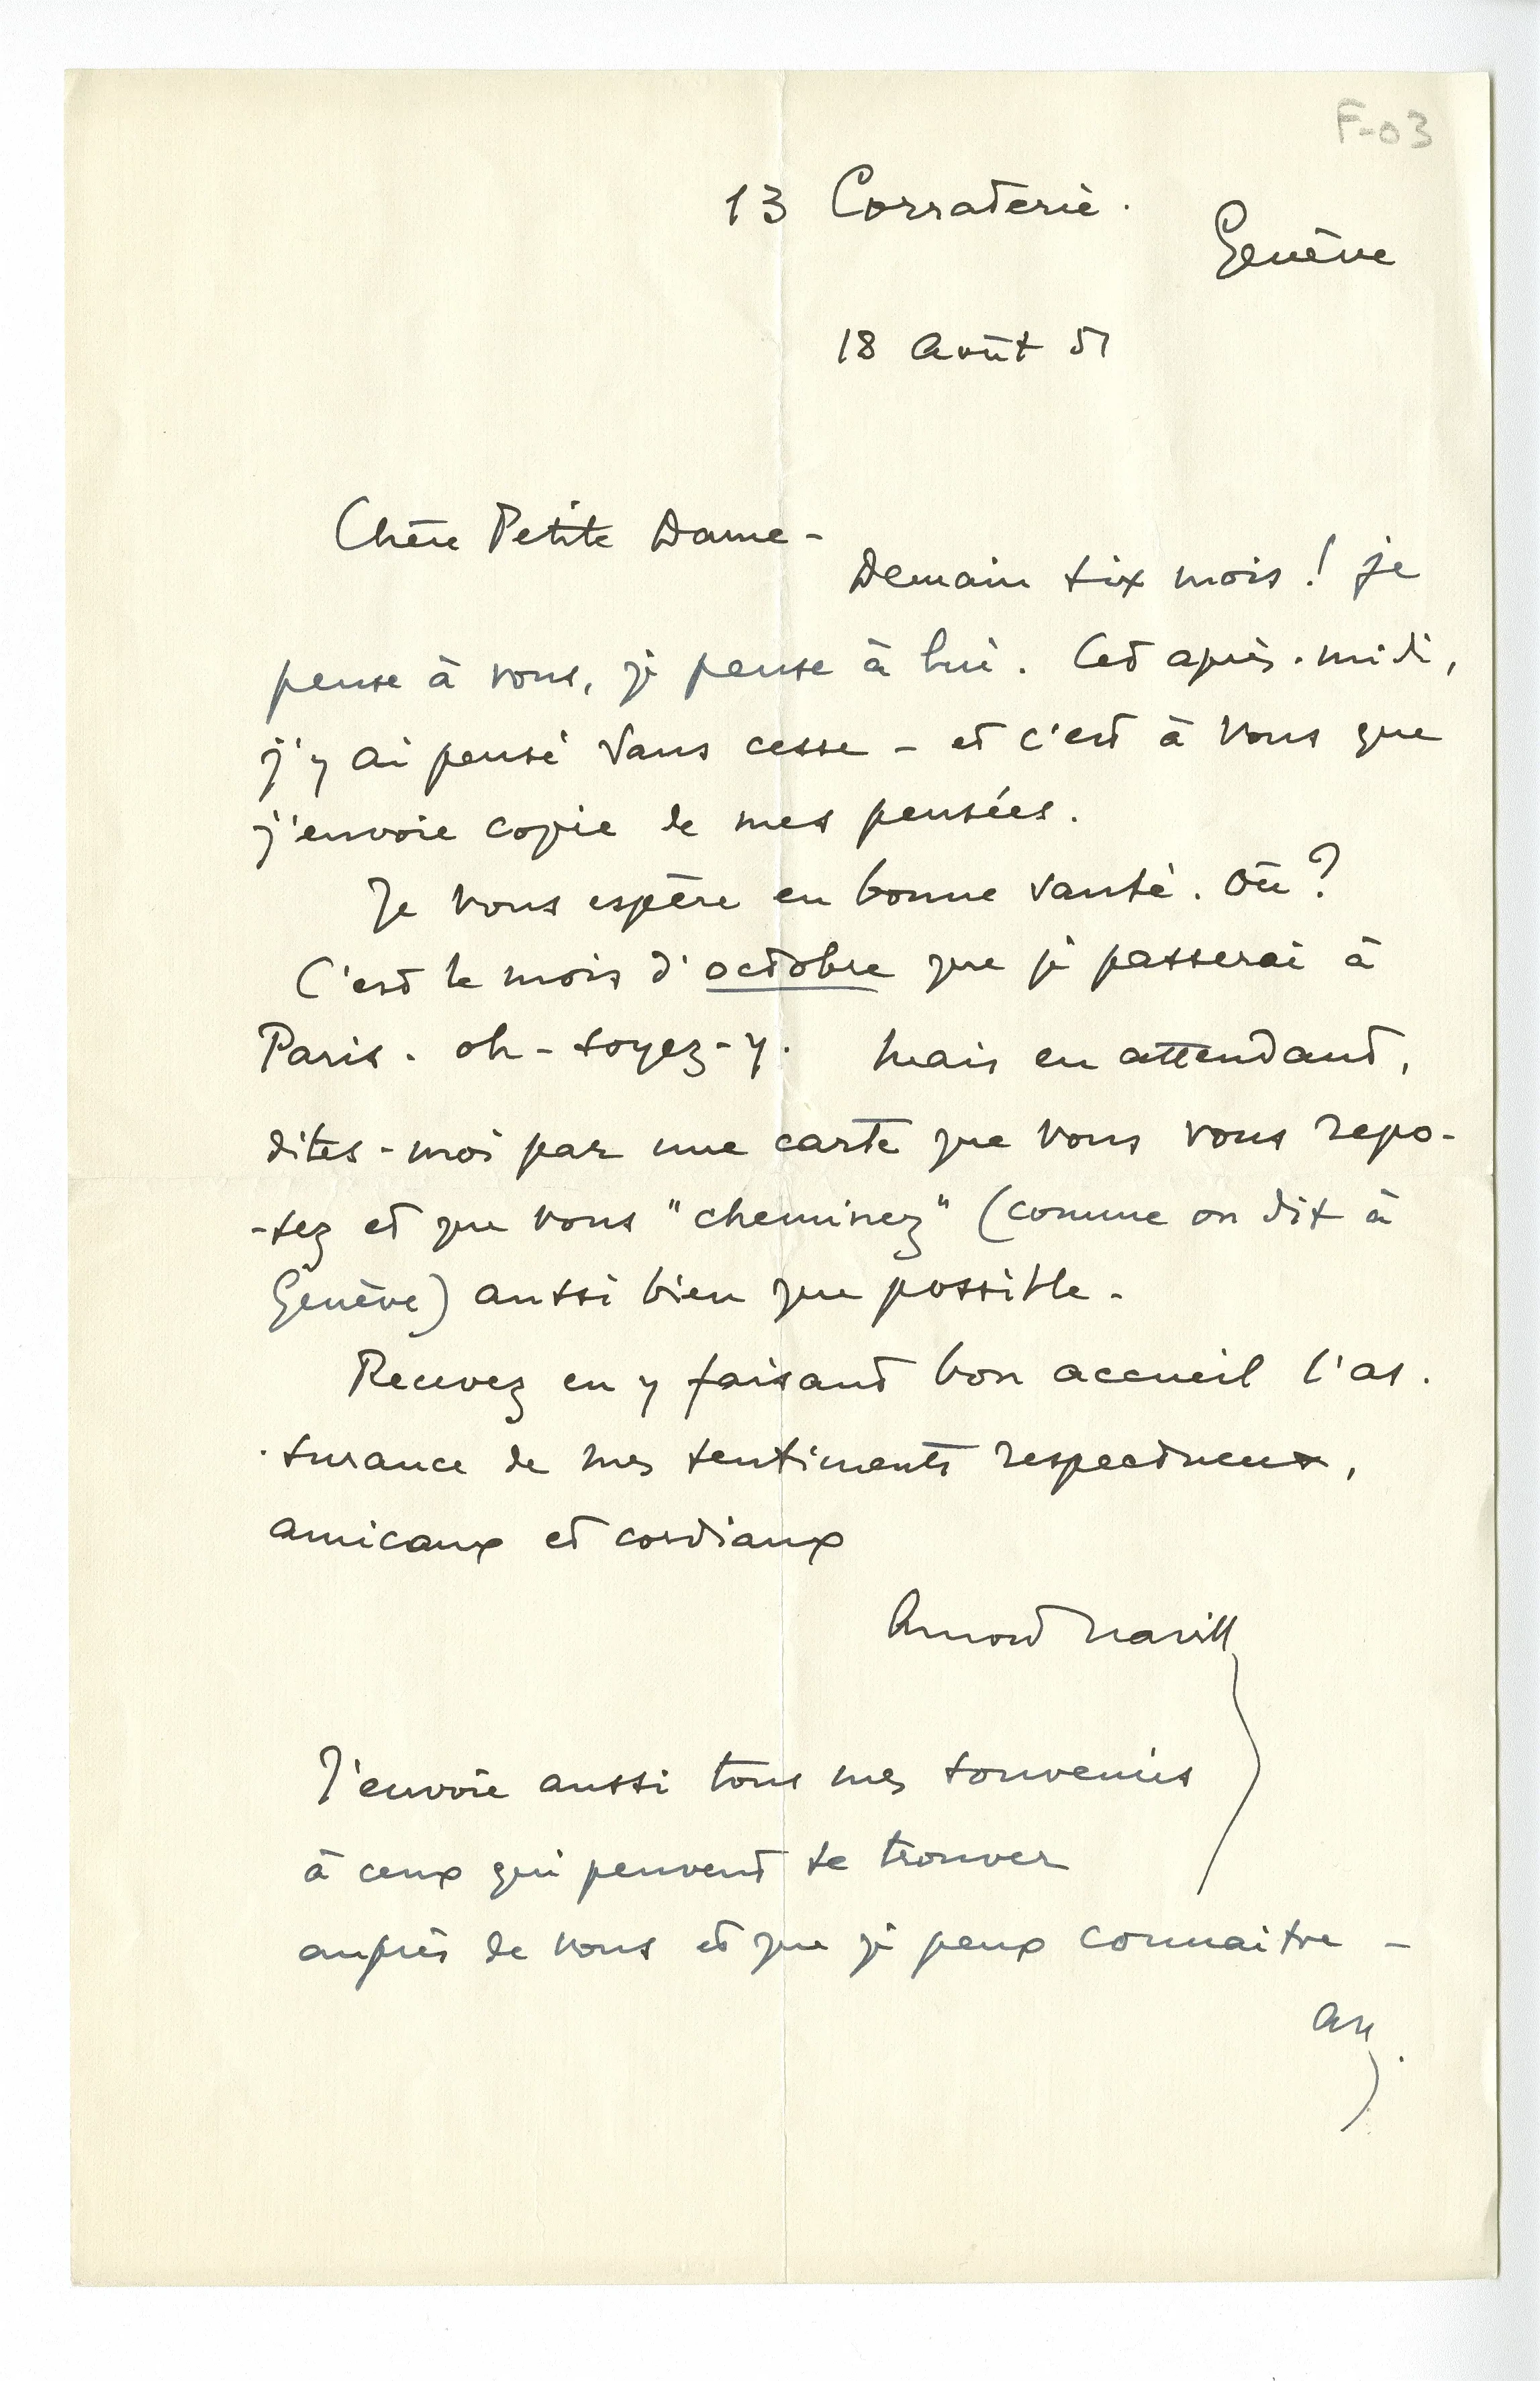 F-03
13 Corraterie.
Genève
18 Août 51
Chère Petite Dame -
Demain six mois ! je
pense à vous, je pense à lui. Cet après-midi,
j'y ai pensé sans cesse - et c'est à vous que
j'envoie copie de mes pensées.
Je vous espère en bonne santé. Où ?
C'est le mois d'octobre que je passerai à
Paris. oh - soyez-y. Mais en attendant,
dites-moi par une carte que vous vous repo-
-sez et que vous "cheminez" (comme on dit à
Genève) aussi bien que possible.
Recevez en y faisant bon accueil l'as-
-surance de mes sentiments respectueux,
amicaux et cordiaux
Arnold Naville
J'envoie aussi tous mes souvenirs
à ceux qui peuvent se trouver
auprès de vous et que je peux connaitre -
AN.